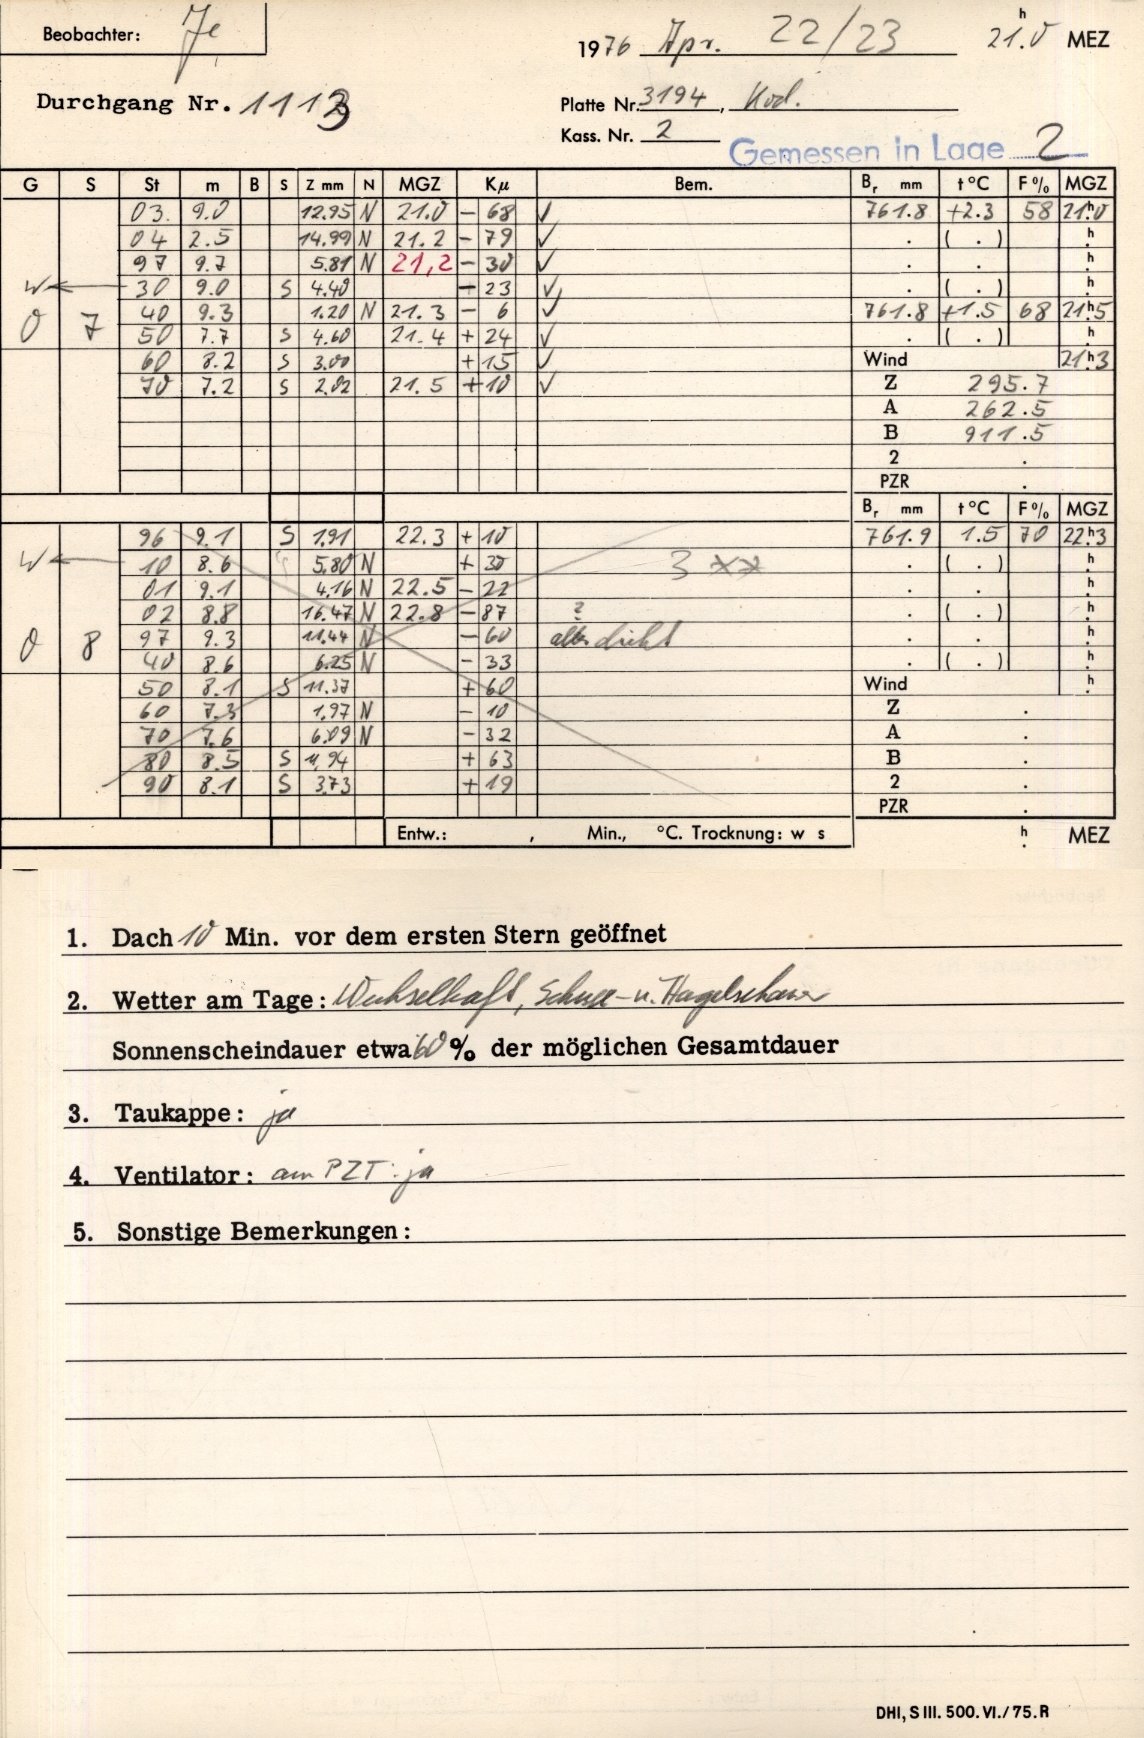 Beobachter: Je
1976 Apr. 22/23 21h.0 MEZ
Durchgang Nr. 1113
Platte Nr. 3194, Kod.
Kass. Nr. 2
Gemessen in Lage 2
G S St m B S Z mm N MGZ Kμ Bem. Br mm t °C F% MGZ
03. 9.0 12.95 N 21.0 - 68 ✓ 761.8 +2.3 58 21h.0
04 2.5 14.99 N 21.2 - 79 ✓ . ( . ) h.
97 9.7 5.81 N 21,2 - 30 ✓ . . h.
W ← 30 9.0 S 4.40 - 23 ✓ . ( . ) h.
0 7 40 9.3 1.20 N 21.3 - 6 ✓ 761.8 +1.5 68 21h.5
50 7.7 S 4.60 21.4 + 24 ✓ ( . ) h.
60 8.2 S 3.00 + 15 ✓ Wind 21h.3
70 7.2 S 2.02 21.5 + 10 ✓ Z 295.7
A 262.5
B 911.5
2 .
PZR .
Br mm t °C F% MGZ
96 9.1 S 1.91 22.3 + 10 761.9 1.5 70 22h.3
W ← 10 8.6 5.80 N + 30 3 ** . ( . ) h.
01 9.1 4.16 N 22.5 - 22 . . h.
02 8.8 16.47 N 22.8 - 87 ? . ( . ) h.
0 8 97 9.3 11.44 N - 60 alles dicht . . h.
40 8.6 6.25 N - 33 . ( . ) h.
50 8.1 S 11.37 + 60 Wind h.
60 7.3 1.97 N - 10 Z .
70 7.6 6.09 N - 32 A .
80 8.5 S 11.94 + 63 B .
90 8.1 S 3.73 + 19 2 .
PZR .
Entw.: , Min., °C. Trocknung: w s h. MEZ
1. Dach 10 Min. vor dem ersten Stern geöffnet
2. Wetter am Tage: Wechselhaft, Schnee- u. Hagelschauer
Sonnenscheindauer etwa 60 % der möglichen Gesamtdauer
3. Taukappe: ja
4. Ventilator: am PZT: ja
5. Sonstige Bemerkungen:
DHI, S III. 500. VI./75. R